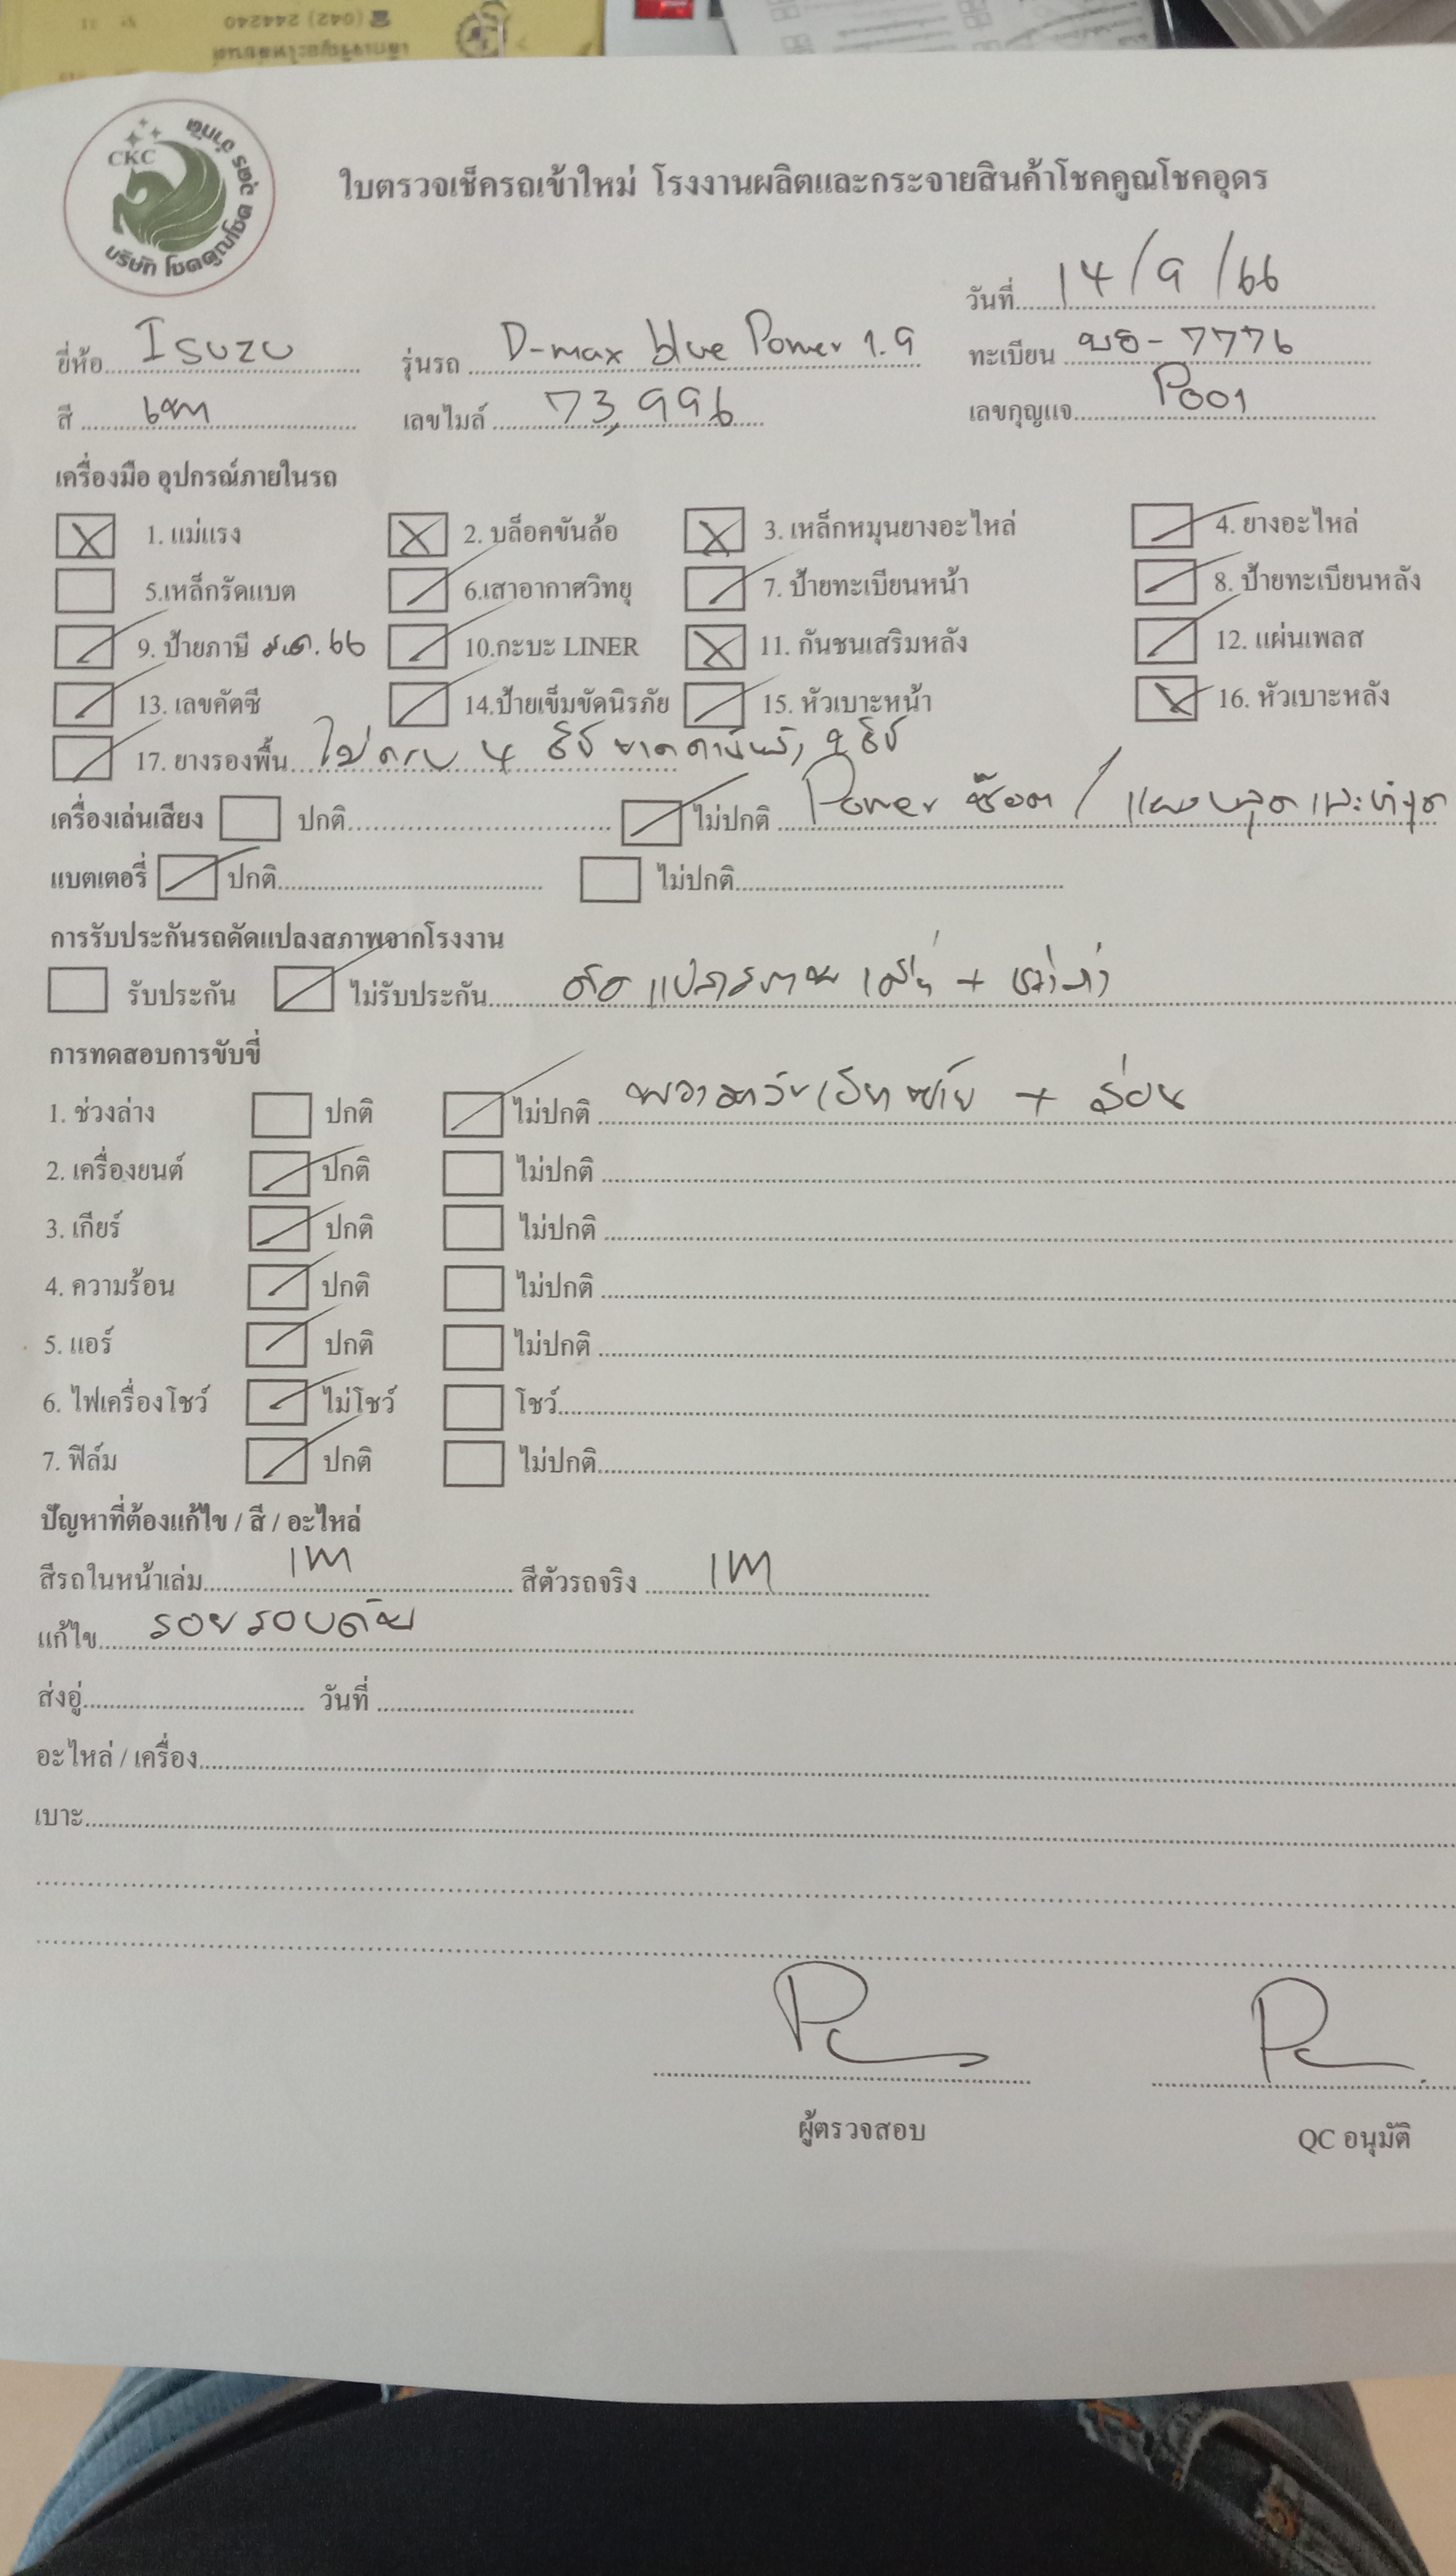 ☎ (042) 244240
CKC
บริษัท โชคคูณโชค อุดร จำกัด
ใบตรวจเช็ครถเข้าใหม่ โรงงานผลิตและกระจายสินค้าโชคคูณโชคอุดร
วันที่ 14/9/66
ยี่ห้อ Isuzu รุ่นรถ D-max blue Power 1.9 ทะเบียน - 7776
สี เทา เลขไมล์ 73,996 เลขกุญแจ P001
เครื่องมือ อุปกรณ์ภายในรถ
1. แม่แรง 2. บล็อคขันล้อ 3. เหล็กหมุนยางอะไหล่ 4. ยางอะไหล่
5.เหล็กรัดแบต 6.เสาอากาศวิทยุ 7. ป้ายทะเบียนหน้า 8. ป้ายทะเบียนหลัง
9. ป้ายภาษี 66 10.กะบะ LINER 11. กันชนเสริมหลัง 12. แผ่นเพลส
13. เลขคัตซี 14.ป้ายเข็มขัดนิรภัย 15. หัวเบาะหน้า 16. หัวเบาะหลัง
17. ยางรองพื้น ไม่ครบ 4
เครื่องเล่นเสียง ปกติ ไม่ปกติ Power ช๊อต /
แบตเตอรี่ ปกติ ไม่ปกติ
การรับประกันรถดัดแปลงสภาพจากโรงงาน
รับประกัน ไม่รับประกัน
การทดสอบการขับขี่
1. ช่วงล่าง ปกติ ไม่ปกติ + ร่อน
2. เครื่องยนต์ ปกติ ไม่ปกติ
3. เกียร์ ปกติ ไม่ปกติ
4. ความร้อน ปกติ ไม่ปกติ
5. แอร์ ปกติ ไม่ปกติ
6. ไฟเครื่องโชว์ ไม่โชว์ โชว์
7. ฟิล์ม ปกติ ไม่ปกติ
ปัญหาที่ต้องแก้ไข / สี / อะไหล่
สีรถในหน้าเล่ม เทา สีตัวรถจริง เทา
แก้ไข รอยรอบคัน
ส่งอู่ วันที่
อะไหล่ / เครื่อง
เบาะ
ผู้ตรวจสอบ QC อนุมัติ